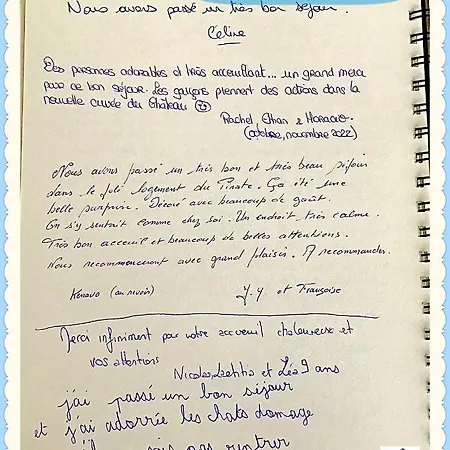 Nous avons passé un très bon séjour.
Céline
Des personnes adorables et très accueillant... un grand merci
pour ce bon séjour. Les garçons prennent des actions dans la
nouvelle cuvée du Château
Rachel, Ethan & Horacio.
(octobre, novembre 2022)
Nous avons passé un très bon et très beau séjour
dans le joli logement du Pirate. Ça été une
belle surprise. Décoré avec beaucoup de goût.
On s'y sentait comme chez soi. Un endroit très calme.
Très bon acceuil et beaucoup de belles attentions.
Nous recommenceront avec grand plaisir. A recommander.
Kenavo (au revoir) J.Y et Françoise
Merci infiniment pour votre accueil chaleureuse et
vos attentions
Nicolas, Laetitia et Léa 9 ans
j'ai passé un bon séjour
et j'ai adorrée les chats domage